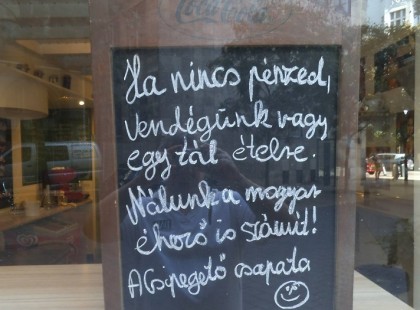 Coca-Cola
Ha nincs pénzed,
Vendégünk vagy
egy tál ételre.
Nálunk a magyar
éhező is számít!
A Csipegető csapata